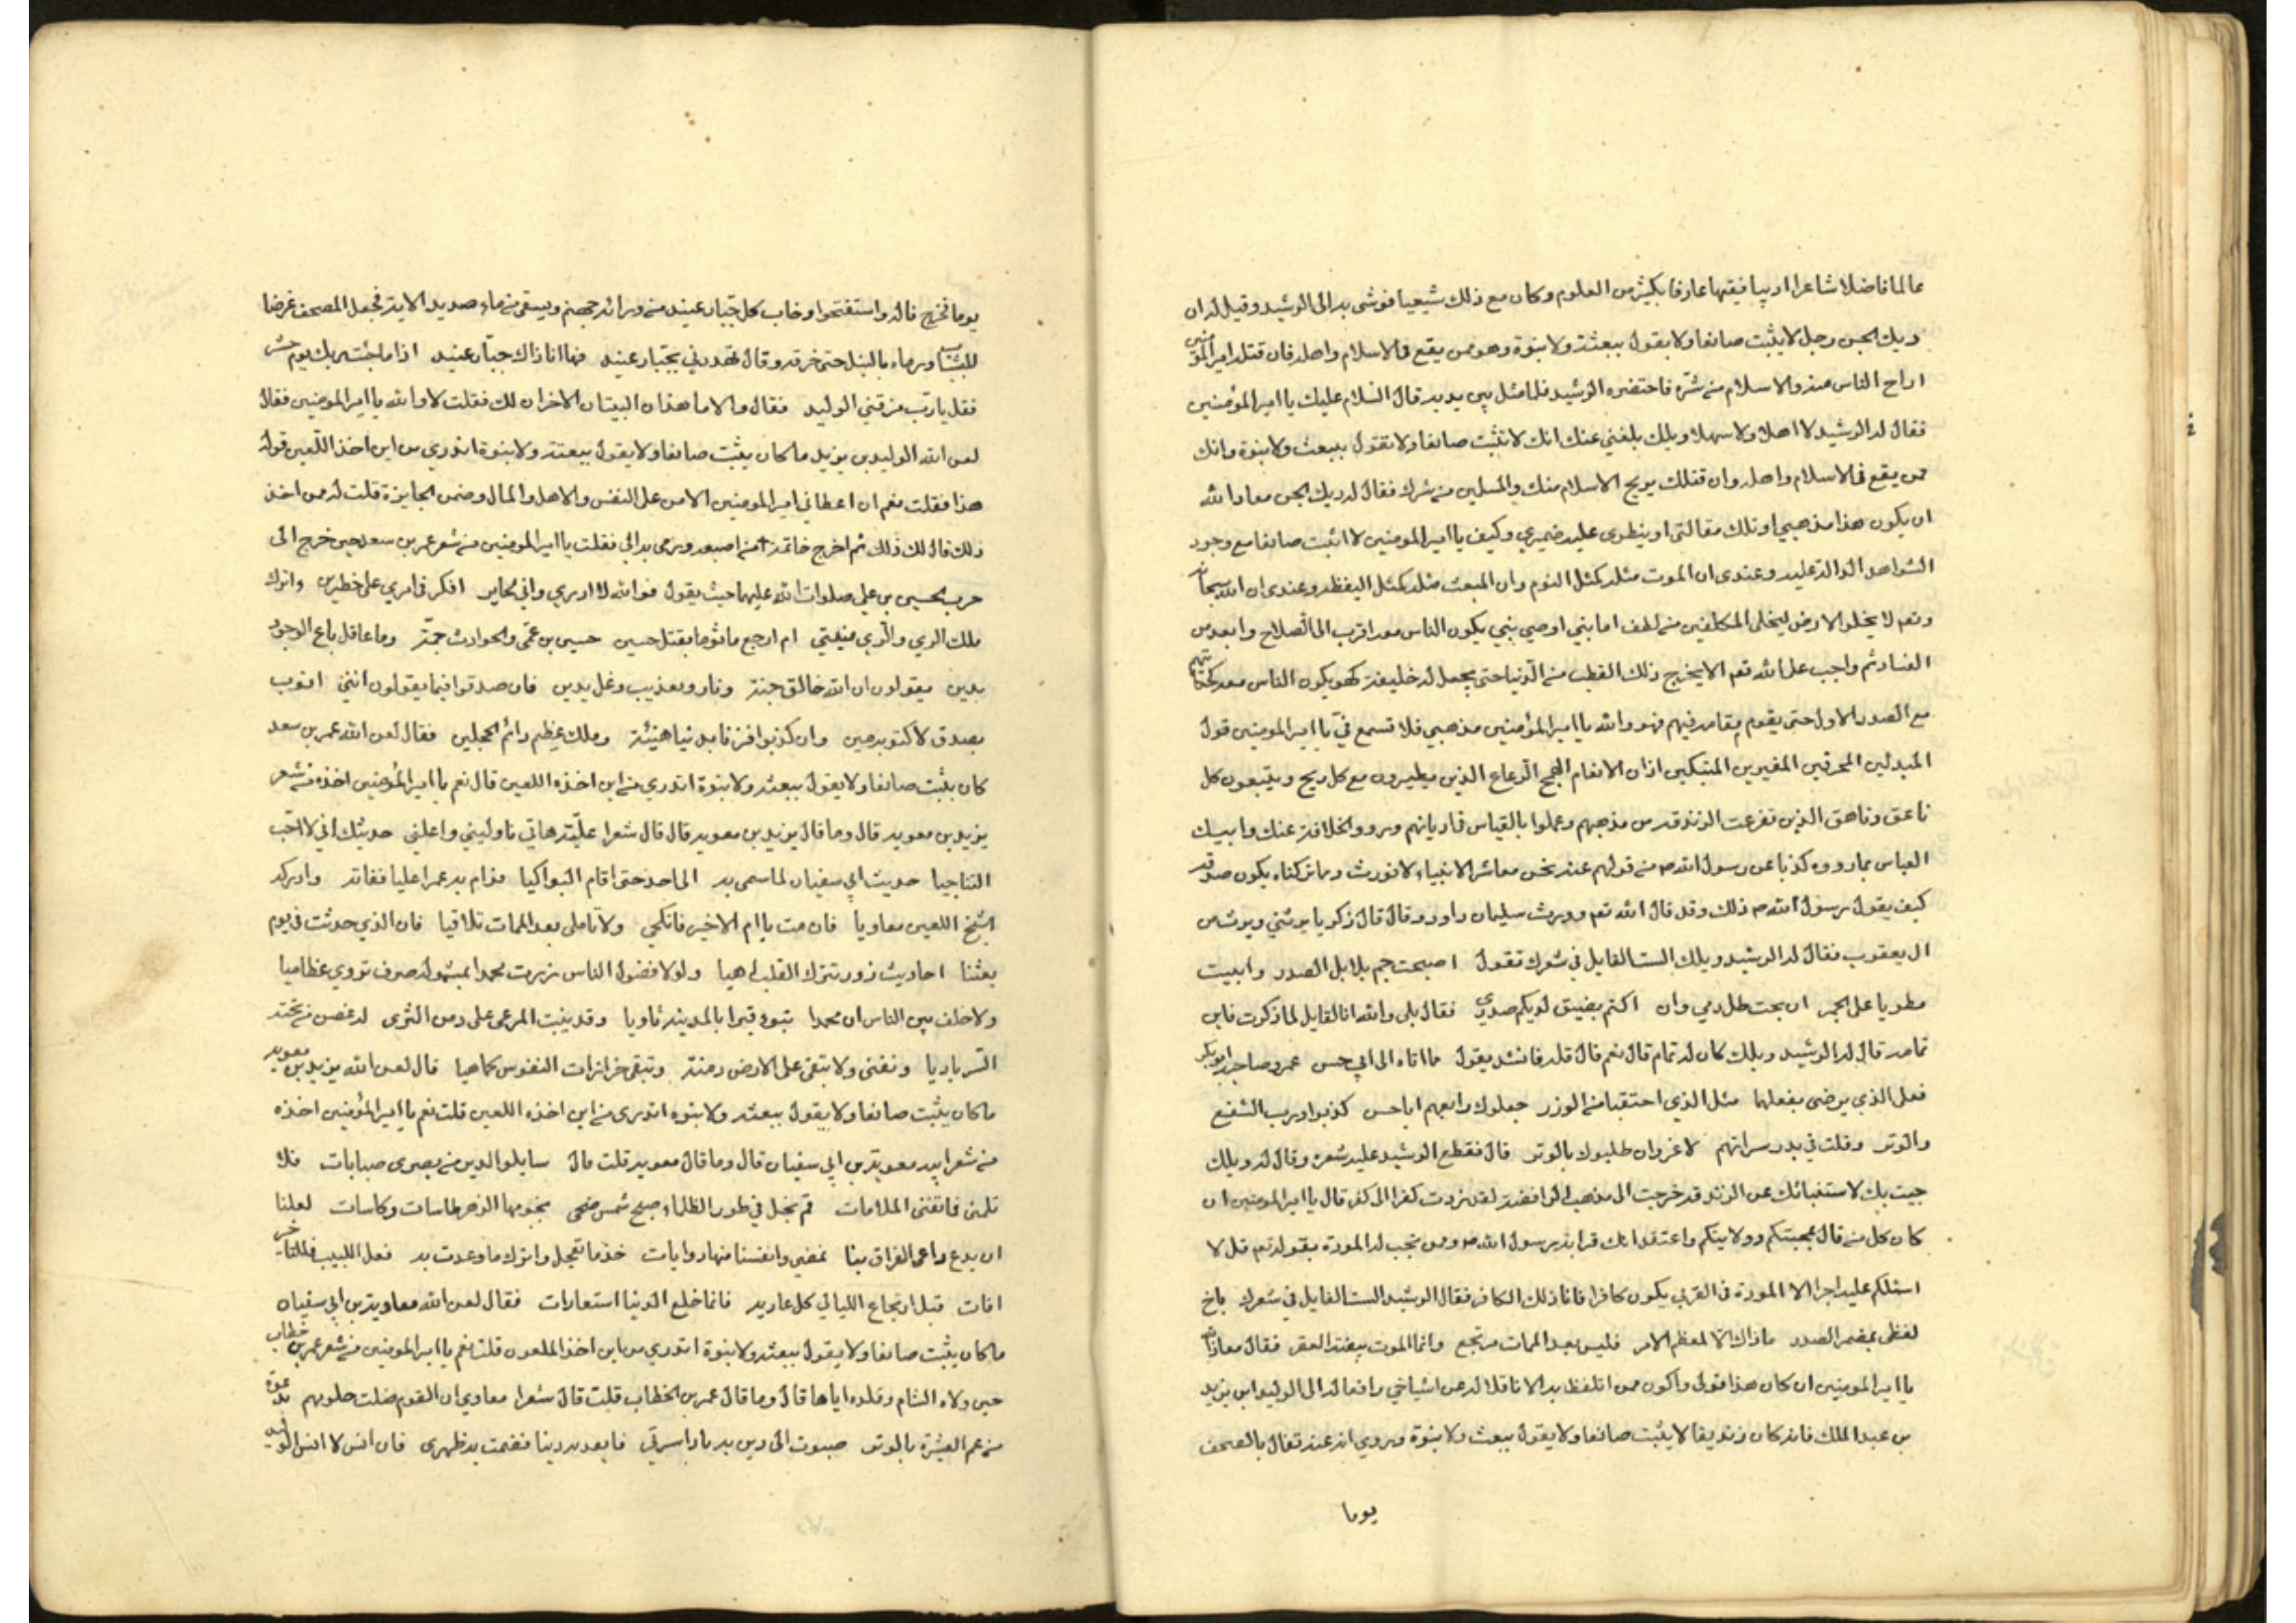 عالما فاضلا شاعرا اديبا فقيها عارفا بكثير من العلوم وكان مع ذلك شيعيا فوشى به الى الرشيد وقيل له ان
ديك الجن رجل لا يثبت صانعا ولا يقول ببعثة ولا بنوة وهو ممن يقع في الاسلام واهله فان قتله امير المؤمنين
اراح الناس منه والاسلام من شره فاحتضره الرشيد فلما مثل بين يديه قال السلام عليك يا امير المؤمنين
فقال له الرشيد لا اهلا ولا سهلا ويلك بلغني عنك انك لا تثبت صانعا ولا تقول ببعث ولا بنوة وانك
ممن يقع في الاسلام واهله وان قتلك يريح الاسلام منك والمسلمين من شرك فقال له ديك الجن معاذ الله
ان يكون هذا مذهبي او تلك مقالتي او ينطوى عليه ضميري وكيف يا امير المومنين لا اثبت صانعا مع وجود
الشواهد الدالة عليه وعندى ان الموت مثله كمثل النوم وان المبعث مثله كمثل اليقظه وعندى ان الله سبحانه
وتعم لا يخلو الارض ليخلى المكلفين من لطف اما بنى او وصي بنى يكون الناس معه اقرب الى الصلاح وابعد من
الفساد ثم واجب على الله تعم الا يخرج ذلك القطب من الدنيا حتى يجعل له خليفة كهو يكون الناس معه
مع الصدر الاول حتى يقوم مقامه فيهم فهو والله يا امير المؤمنين مذهبي فلا تسمع في يا امير المومنين قول
المبدلين المحرفين المغيرين المتبكين اذان الانعام الهمج الرعاع الذين يطيرون مع كل ريح ويتبعون كل
ناعق وناهق الذين تفرعت الزندقه من مذهبهم وعملوا بالقياس في اديانهم وردوا الخلافة عنك وابيك
العباس بما رووه كذبا عن رسول الله ص من قولهم عنه نحن معاشر الانبياء لا نورث وما تركناه يكون صدقه
كيف يقول رسول الله ص ذلك وقد قال الله تعم وورث سليمان داود وقال قال زكريا يرثني ويرث من
ال يعقوب فقال له الرشيد ويلك الست القايل في شعرك تقول اصبحت جم بلابل الصدر وابيت
مطويا على الجمر ان بحت طل دمي وان اكتم يضيق لديكم صدري فقال بلى والله انا القايل لما ذكرت فاين
تمامه قال له الرشيد ويلك كان له تمام قال نعم قال قله فانشد يقول مما اتاه الى ابي حسن عمر وصاحبه ابو بكر
فعلى الذي يرضى بفعلهما مثل الذي احتقبا من الوزر جعلوك رابعهم ابا حسن كذبوا ورب الشفع
والوتر وقلت في بدر سراتهم لا غروان طلبوك بالوتر قال فقطع الرشيد عليه شعره وقال له ويلك
جيت بك لاستنبائك عن الزندقه خرجت الى مذهب الرافضة لقد زدت كفرا الى كفر قال يا امير المومنين ان
كان كل من قال بمحبتكم وولايتكم واعتقد انك قرابة رسول الله ص وممن يجب له المودة بقوله تعم قل لا
اسئلكم عليه اجرا الا المودة في القربى يكون كافرا فانا ذلك الكافر فقال الرشيد الست القايل في شعرك باخ
لفظى بمضمر الصدر ماذاك الا لمعظم الامر فليس بعد الممات مرتجع وانما الموت بيضة العقر فقال معاذ الله
يا امير المومنين ان كان هذا قولى واكون ممن اتلفظ به الا ناقلا له عن اشياخي رافعا له الى الوليد ابن يزيد
بن عبد الملك فانه كان زنديقا لا يثبت صانعا ولا يقول ببعث ولا بنوة وروي انه عنه تفال بالمصحف
يوما
يوما فخرج فاله واستفتحوا وخاب كل جبار عنيد من ورائه جهنم ويسقى من ماء صديد الايه فجعل المصحف غرضا
للنشاب ورماه بالنبل حتى خرقه وقال تهددني بجبار عنيد فها انا ذاك جبار عنيد اذا ما جئت ربك يوم حشر
فقل يا رب مزقني الوليد فقال والا ما هذان البيتان الاخران لك فقلت لا والله يا امير المومنين فقال
لعن الله الوليد بن يزيد ما كان يثبت صانعا ولا يقول ببعثة ولا بنوة اتدري من اين اخذ اللعين قوله
هذا فقلت نعم ان اعطاني امير المومنين الامن على النفس والاهل والمال وضمن الجايزة قلت له ممن اخذ
ذلك قال لك ذلك ثم اخرج خاتمه من اصبعه ورمى به الي فقلت يا امير المومنين من شعر عمر بن سعد حين خرج الى
حرب الحسين بن علي صلوات الله عليهما حيث يقول فوالله لا ادري واني لحاير افكر في امري على خطرين واترك
ملك الري والري منيتي ام ارجع ماثوما بقتل حسين حسين بن عمى والحوادث جمة وما عاقل باع الوجود
بدين يقولون ان الله خالق جنة ونار وتعذيب وغل يدين فان صدقوا فيما يقولون انني اتوب
بصدق وان كذبوا فزنا بدنيا هنيئة وملك عظيم دائم الحجلين فقال لعن الله عمر بن سعد
كان يثبت صانعا ولا يقول ببعثه ولا بنوة اتدري من اين اخذه اللعين قال نعم يا امير المؤمنين اخذه من شعر
يزيد بن معويه قال وما قال يزيد بن معويه قال قال شعرا علية هاتي ناوليني واعلني حديثك اني لا احب
التناجيا حديث ابي سفيان لما سمى به الى احد حتى اقام البواكيا فرام به عمرا عليا ففاته وادركه
الشيخ اللعين معاويا فان مت يا ام الاخير فانكحي ولا تاملى بعد الممات تلاقيا فان الذي حدثت في يوم
بعثنا احاديث زور تترك القلب لاهيا ولولا فضول الناس زرت محمدا بمشموله صرف تروي عظاميا
ولا خلف بين الناس ان محمدا تبوء قبرا بالمدينه ثاويا وقد ينبت المرعى على دمن الثرى له غصن من تحته
السر باديا ونفنى ولا تبقى على الارض دمنة وتبقى حزازات النفوس كما هيا قال لعن الله يزيد بن معويه
ما كان يثبت صانعا ولا يقول ببعثه ولا بنوه اتدرى من اين اخذه اللعين قلت نعم يا امير المؤمنين اخذه
من شعر ابيه معوية بن ابي سفيان قال وما قال معويه قلت قال سايلوا الدير من بصرى صبابات فلا
تلمنى فاتغنى الملامات قم نجل في طور الظلماء صبح شمس ضحى نجومها الزهر طاسات وكاسات لعلنا
ان يدع داعى الفراق بنا نمضي وانفسنا منها رويات خذ ما تعجل واترك ما وعدت به فعل اللبيب فللتاخير
افات قبل ارتجاع الليالي كل عاريه فانما خلع الدنيا استعارات فقال لعن الله معاوية بن ابي سفيان
ما كان يثبت صانعا ولا يقول ببعثه ولا بنوة اتدري من اين اخذ الملعون قلت نعم يا امير المومنين من شعر عمر بن خطاب
حين ولاه الشام وقلده اياها قال وما قال عمر بن الخطاب قلت قال شعرا معاوي ان القوم ضلت حلومهم بدعوة
من عم العشيرة بالوتر صبوت الى دين به باد اسرتي فابعد به دينا قصمت به ظهرى فان انس لا انس الوليد